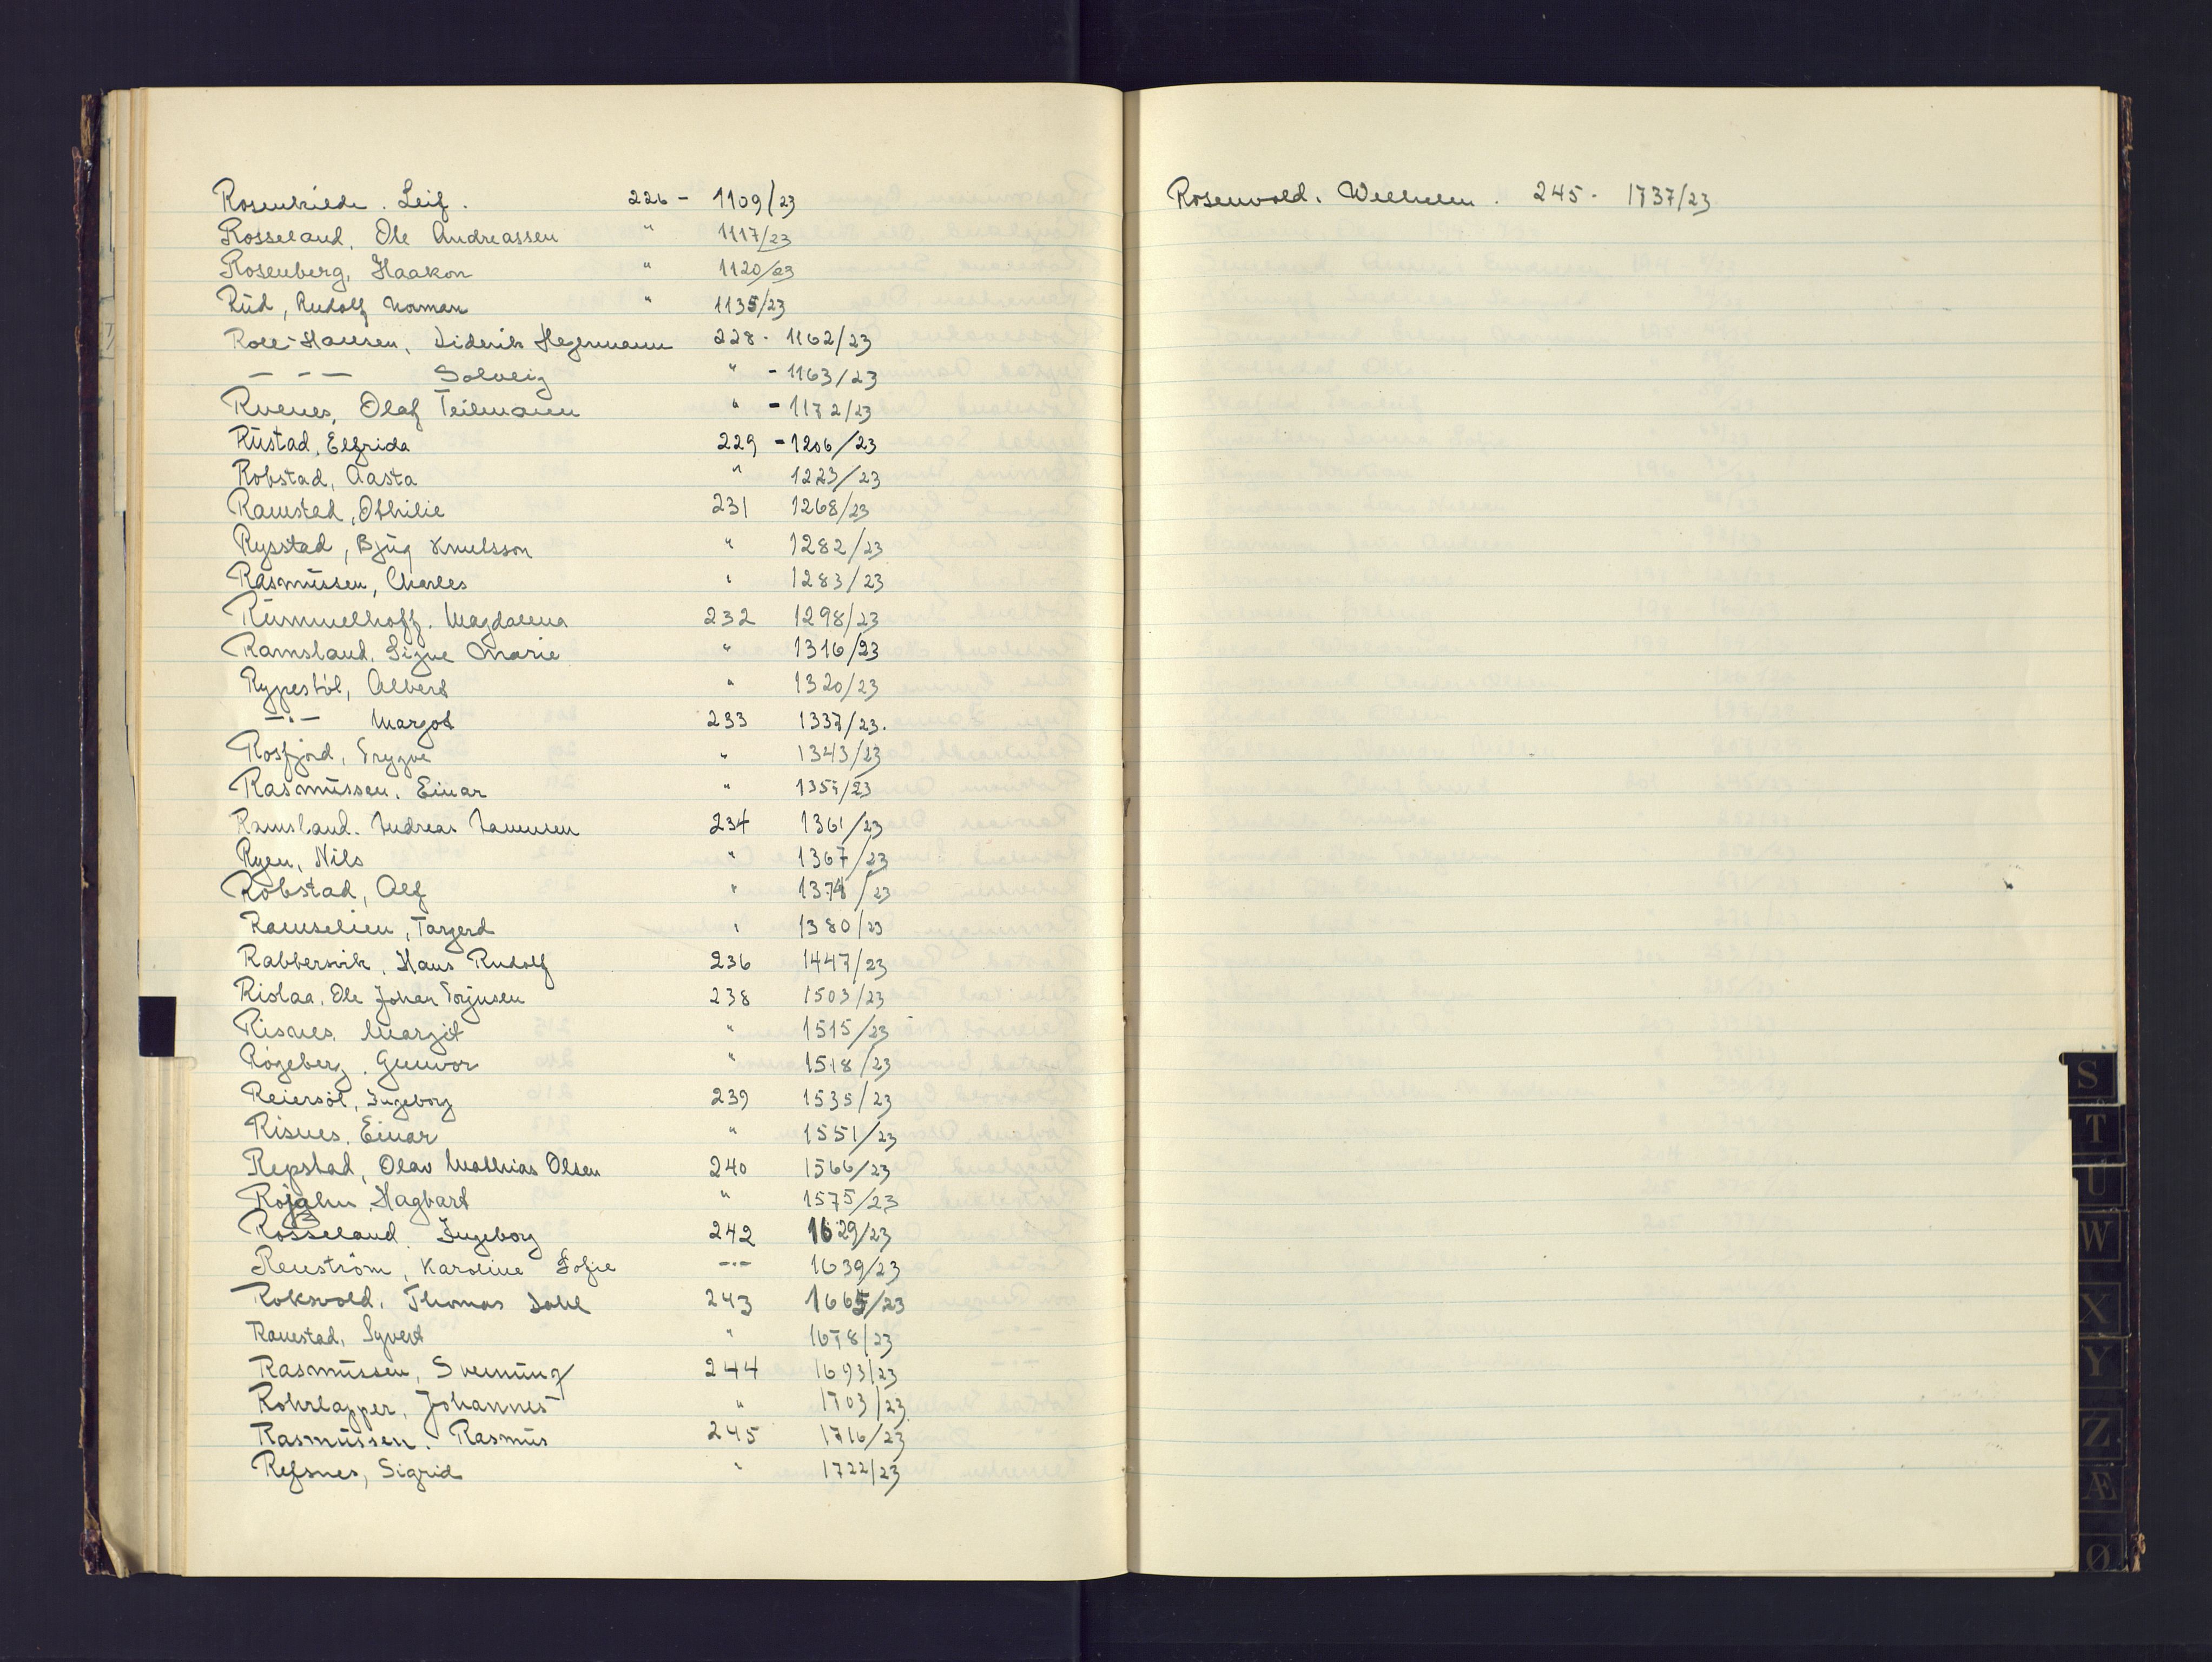 Rosenkilde. Leif. 226 - 1109/23
Rosseland, Ole Andreassen " 1117/23
Rosenberg, Haakon " 1120/23
Rüd, Rudolf Norman " 1135/23
Roll-Hansen, Diderik Hegermann 228 - 1162/23
— - — Solveig " - 1163/23
Rvenes, Olaf Teilmann " - 1172/23
Rüstad, Elfrida 229 - 1206/23
Robstad, Aasta " 1223/23
Ramsted, Othilie 231 1268/23
Rysstad, Bjüg Knutsson " 1282/23
Rasmüssen, Charles " 1283/23
Rümmelhoff. Magdalena 232 1298/23
Ramsland. Signe Marie " 1316/23
Rypestöl, Albert " 1320/23
—·— Margot 233 1337/23.
Rosfjord, Trygve " 1343/23
Rasmüssen. Einar " 1357/23
Ramsland. Andreas 234 1361/23
Ryen, Nils " 1367/23
Robstad, Alf " 1378/23
Ramselien, Targerd " 1380/23
Rabbersvik, Hans Rudolf 236 1447/23
Rislaa, Ole Johan Torjusen 238 1503/23
Risnes. Margit " 1515/23
Rögeberg, Gunvor " 1518/23
Reiersöl, Ingeborg 239 1535/23
Risnes, Einar " 1551/23
Repstad, Olav Mathias Olsen 240 1566/23
Rojahn, Hagbart " 1575/23
Rosseland. Ingeborg 242 1629/23
Renström, Karoline Sofie —·— 1639/23
Roksvold, Thomas Dahl 243 1665/23
Ranestad, Syvert " 1678/23
Rasmüssen, Svenüng 244 1693/23
Rohrlapper, Johannes " 1703/23
Rasmüssen. Rasmüs 245 1716/23
Refsnes, Sigrid " 1722/23
Rosenvold. Wilhelm. 245 - 1737/23
S
T
U
W
X
Y
Z
Æ
Ø